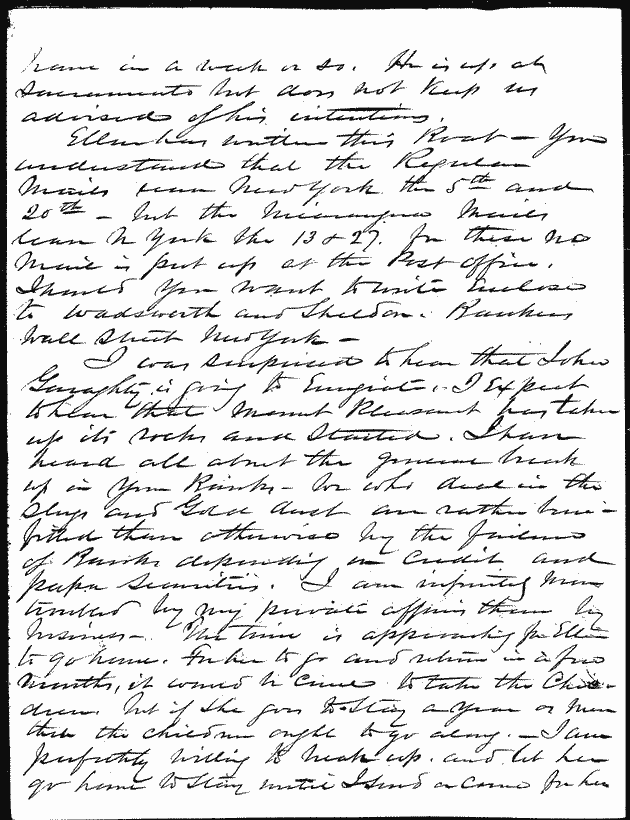 home in a week or so. He is up at
Sacramento but does not keep us
advised of his intentions.
Ellen has written this Boat - You
understand that the Regular
Mails leave New York the 5th and
20th - but the Nicaragua Mails
leave N York the 13 & 27. for these no
Mail is put up at the Post Office.
Should you want to write enclose
to Wadsworth and Sheldon. Bankers
Wall Street New York -
I was surprised to hear that John
Geraghty is going to Emigrate. I Expect
to hear that Mount Pleasant has taken
up its rocks and Started. I have
heard all about the general break
up in your Banks - We who deal in the
Slugs and Gold dust are rather bene-
fitted than otherwise by the failures
of Banks depending on Credit and
paper Securities. I am infinitely more
troubled by my private affairs than by
business -. The time is approaching for Ellen
to go home. For her to go and return in a few
months, it would be cruel to take the Chil-
dren. but if she goes to Stay a year or more
then the children ought to go along. - I am
perfectly willing to break up. and let her
go home to Stay until I send or come for her